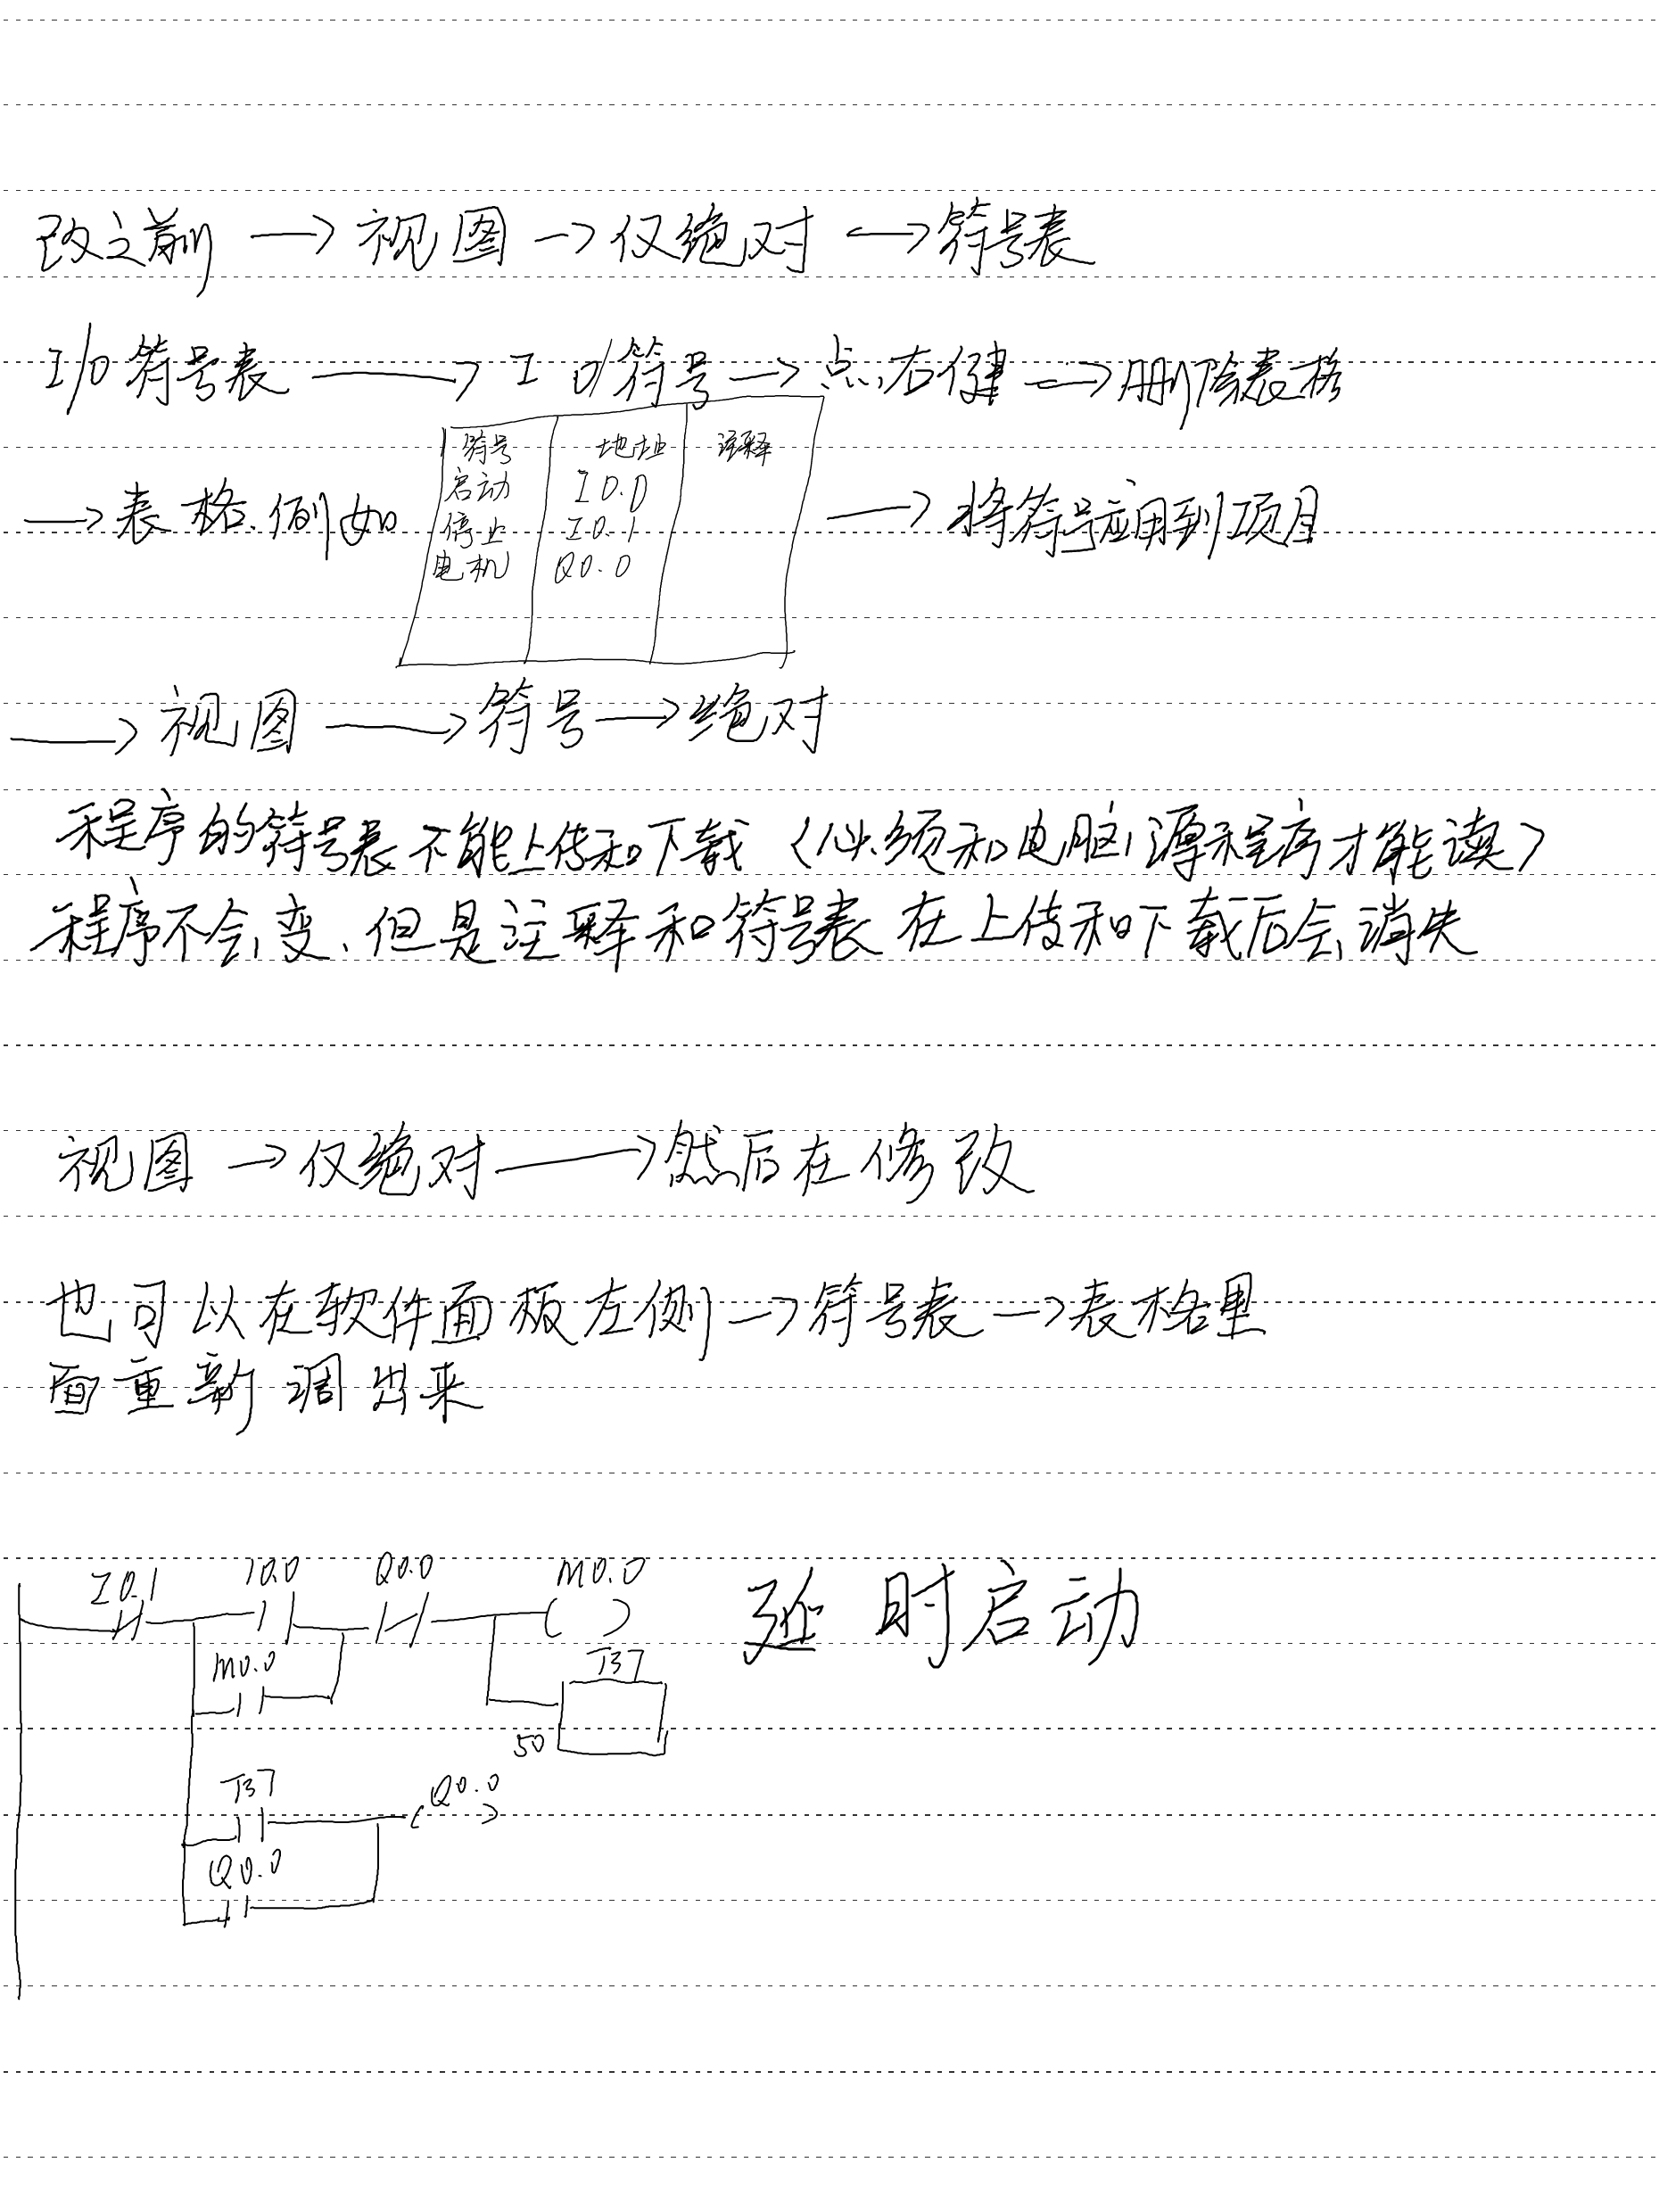 改之前 → 视图 → 仅绝对 → 符号表
I/O 符号表 → I O/符号 → 点右健 → 删除表格
符号 地址 注释
启动 I0.0
→ 表格.例如 → 将符号应用到项目
停止 I0.1
电机 Q0.0
→ 视图 → 符号 → 绝对
程序的符号表不能上传和下载（必须和电脑源程序才能读）
程序不会变、但是注释和符号表在上传和下载后会消失
视图 → 仅绝对 → 然后在修改
也可以在软件面板左侧 → 符号表 → 表格里
面重新调出来
I0.1 I0.0 Q0.0 M0.0 延时启动
M0.0 T37
50
T37 Q0.0
Q0.0